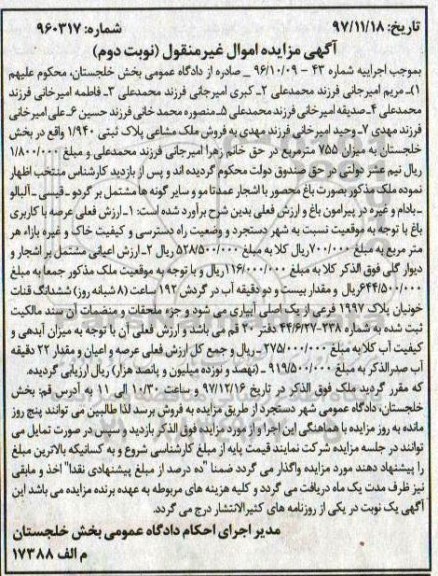 تاریخ: ۹۷/۱۱/۱۸ شماره: ۹۶۰۳۱۷
آگهی مزایده اموال غیرمنقول (نوبت دوم)
بموجب اجراییه شماره ۴۳ – ۹۶/۱۰/۰۹ _ صادره از دادگاه عمومی بخش خلجستان، محکوم علیهم
۱_ مریم امیرجانی فرزند محمدعلی ۲_ کبری امیرجانی فرزند محمدعلی ۳_ فاطمه امیرخانی فرزند
محمدعلی ۴_ صدیقه امیرخانی فرزند محمدعلی ۵_ منصوره محمدخانی فرزند حسین ۶_ علی امیرخانی
فرزند مهدی ۷_ وحید امیرخانی فرزند مهدی به فروش ملک مشاعی پلاک ثبتی ۱/۹۴۰ واقع در بخش
خلجستان به میزان ۷۵۵ مترمربع در حق خانم زهرا امیرجانی فرزند محمدعلی و مبلغ ۱/۸۰۰/۰۰۰
ریال نیم عشر دولتی در حق صندوق دولت محکوم گردیده اند و پس از بازدید کارشناس منتخب اظهار
نموده ملک مذکور بصورت باغ محصور با اشجار عمدتا مو و سایر گونه ها مشتمل بر گردو _ قیسی _ آلبالو
_ بادام و غیره در پیرامون باغ و ارزش فعلی بدین شرح برآورد شده است: ۱_ ارزش فعلی عرصه با کاربری
باغ با توجه به موقعیت نسبت به شهر دستجرد و وضعیت راه دسترسی و کیفیت خاک و غیره بازاء هر
متر مربع به مبلغ ۷۰۰/۰۰۰ ریال کلا به مبلغ ۵۲۸/۵۰۰/۰۰۰ ریال ۲_ ارزش اعیانی مشتمل بر اشجار و
دیوار گلی فوق الذکر کلا به مبلغ ۱۱۶/۰۰۰/۰۰۰ ریال و با توجه به موقعیت ملک مذکور جمعا به مبلغ
۶۴۴/۵۰۰/۰۰۰ ریال و مقدار بیست و دو دقیقه آب در گردش ۱۹۲ ساعت (۸ شبانه روز) ششدانگ قنات
خونیان پلاک ۱۹۹۷ فرعی از یک اصلی آبیاری می شود و جزء ملحقات و منضمات آن سند مالکیت
ثبت شده به شماره ۲۳۸-۴۴/۶/۲۷ دفتر ۲۰ قم می باشد و ارزش فعلی آن با توجه به میزان آبدهی و
کیفیت آب کلا به مبلغ ۲۷۵/۰۰۰/۰۰۰ _ ریال و جمع کل ارزش فعلی عرصه و اعیان و مقدار ۲۲ دقیقه
آب صدرالذکر به مبلغ ۹۱۹/۵۰۰/۰۰۰ _ (نهصد و نوزده میلیون و پانصد هزار) ریال ارزیابی گردیده.
که مقرر گردید ملک فوق الذکر در تاریخ ۹۷/۱۲/۱۶ و ساعت ۱۰/۳۰ الی ۱۱ به آدرس قم: بخش
خلجستان، دادگاه عمومی شهر دستجرد از طریق مزایده به فروش برسد لذا طالبین می توانند پنج روز
مانده به روز مزایده با هماهنگی این اجرا و از مورد مزایده فوق الذکر بازدید و سپس در صورت تمایل می
توانند در جلسه مزایده شرکت نمایند قیمت پایه از مبلغ کارشناسی شروع و به کسانیکه بالاترین مبلغ
را پیشنهاد دهند مورد مزایده واگذار می گردد ضمنا "ده درصد از مبلغ پیشنهادی نقدا" اخذ و مابقی
نیز ظرف مدت یک ماه دریافت می گردد و کلیه هزینه های مربوطه به عهده برنده مزایده می باشد این
آگهی یک نوبت در یکی از روزنامه های کثیرالانتشار درج می گردد.
مدیر اجرای احکام دادگاه عمومی بخش خلجستان
م الف ۱۷۳۸۸